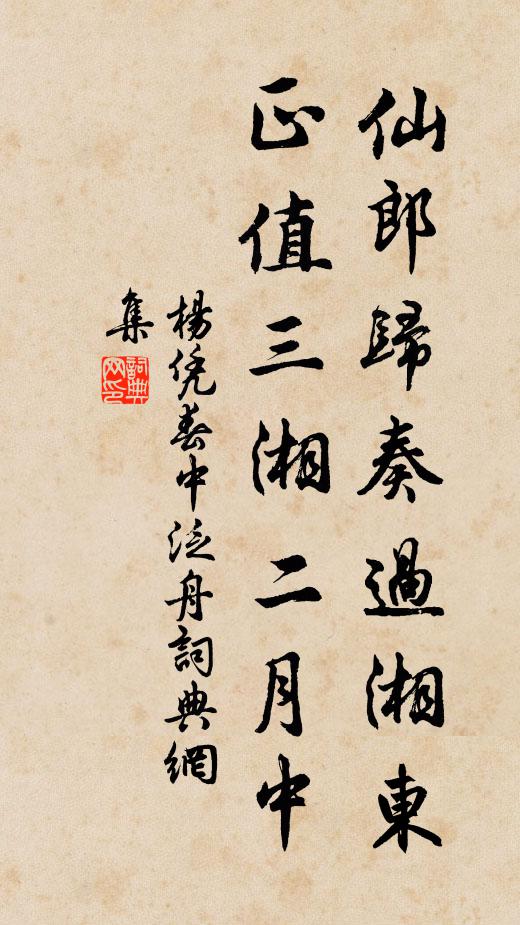 仙郎歸奏過湘東
正值三湘二月中
楊凭春中泛舟詞典網
集
詞典
网印